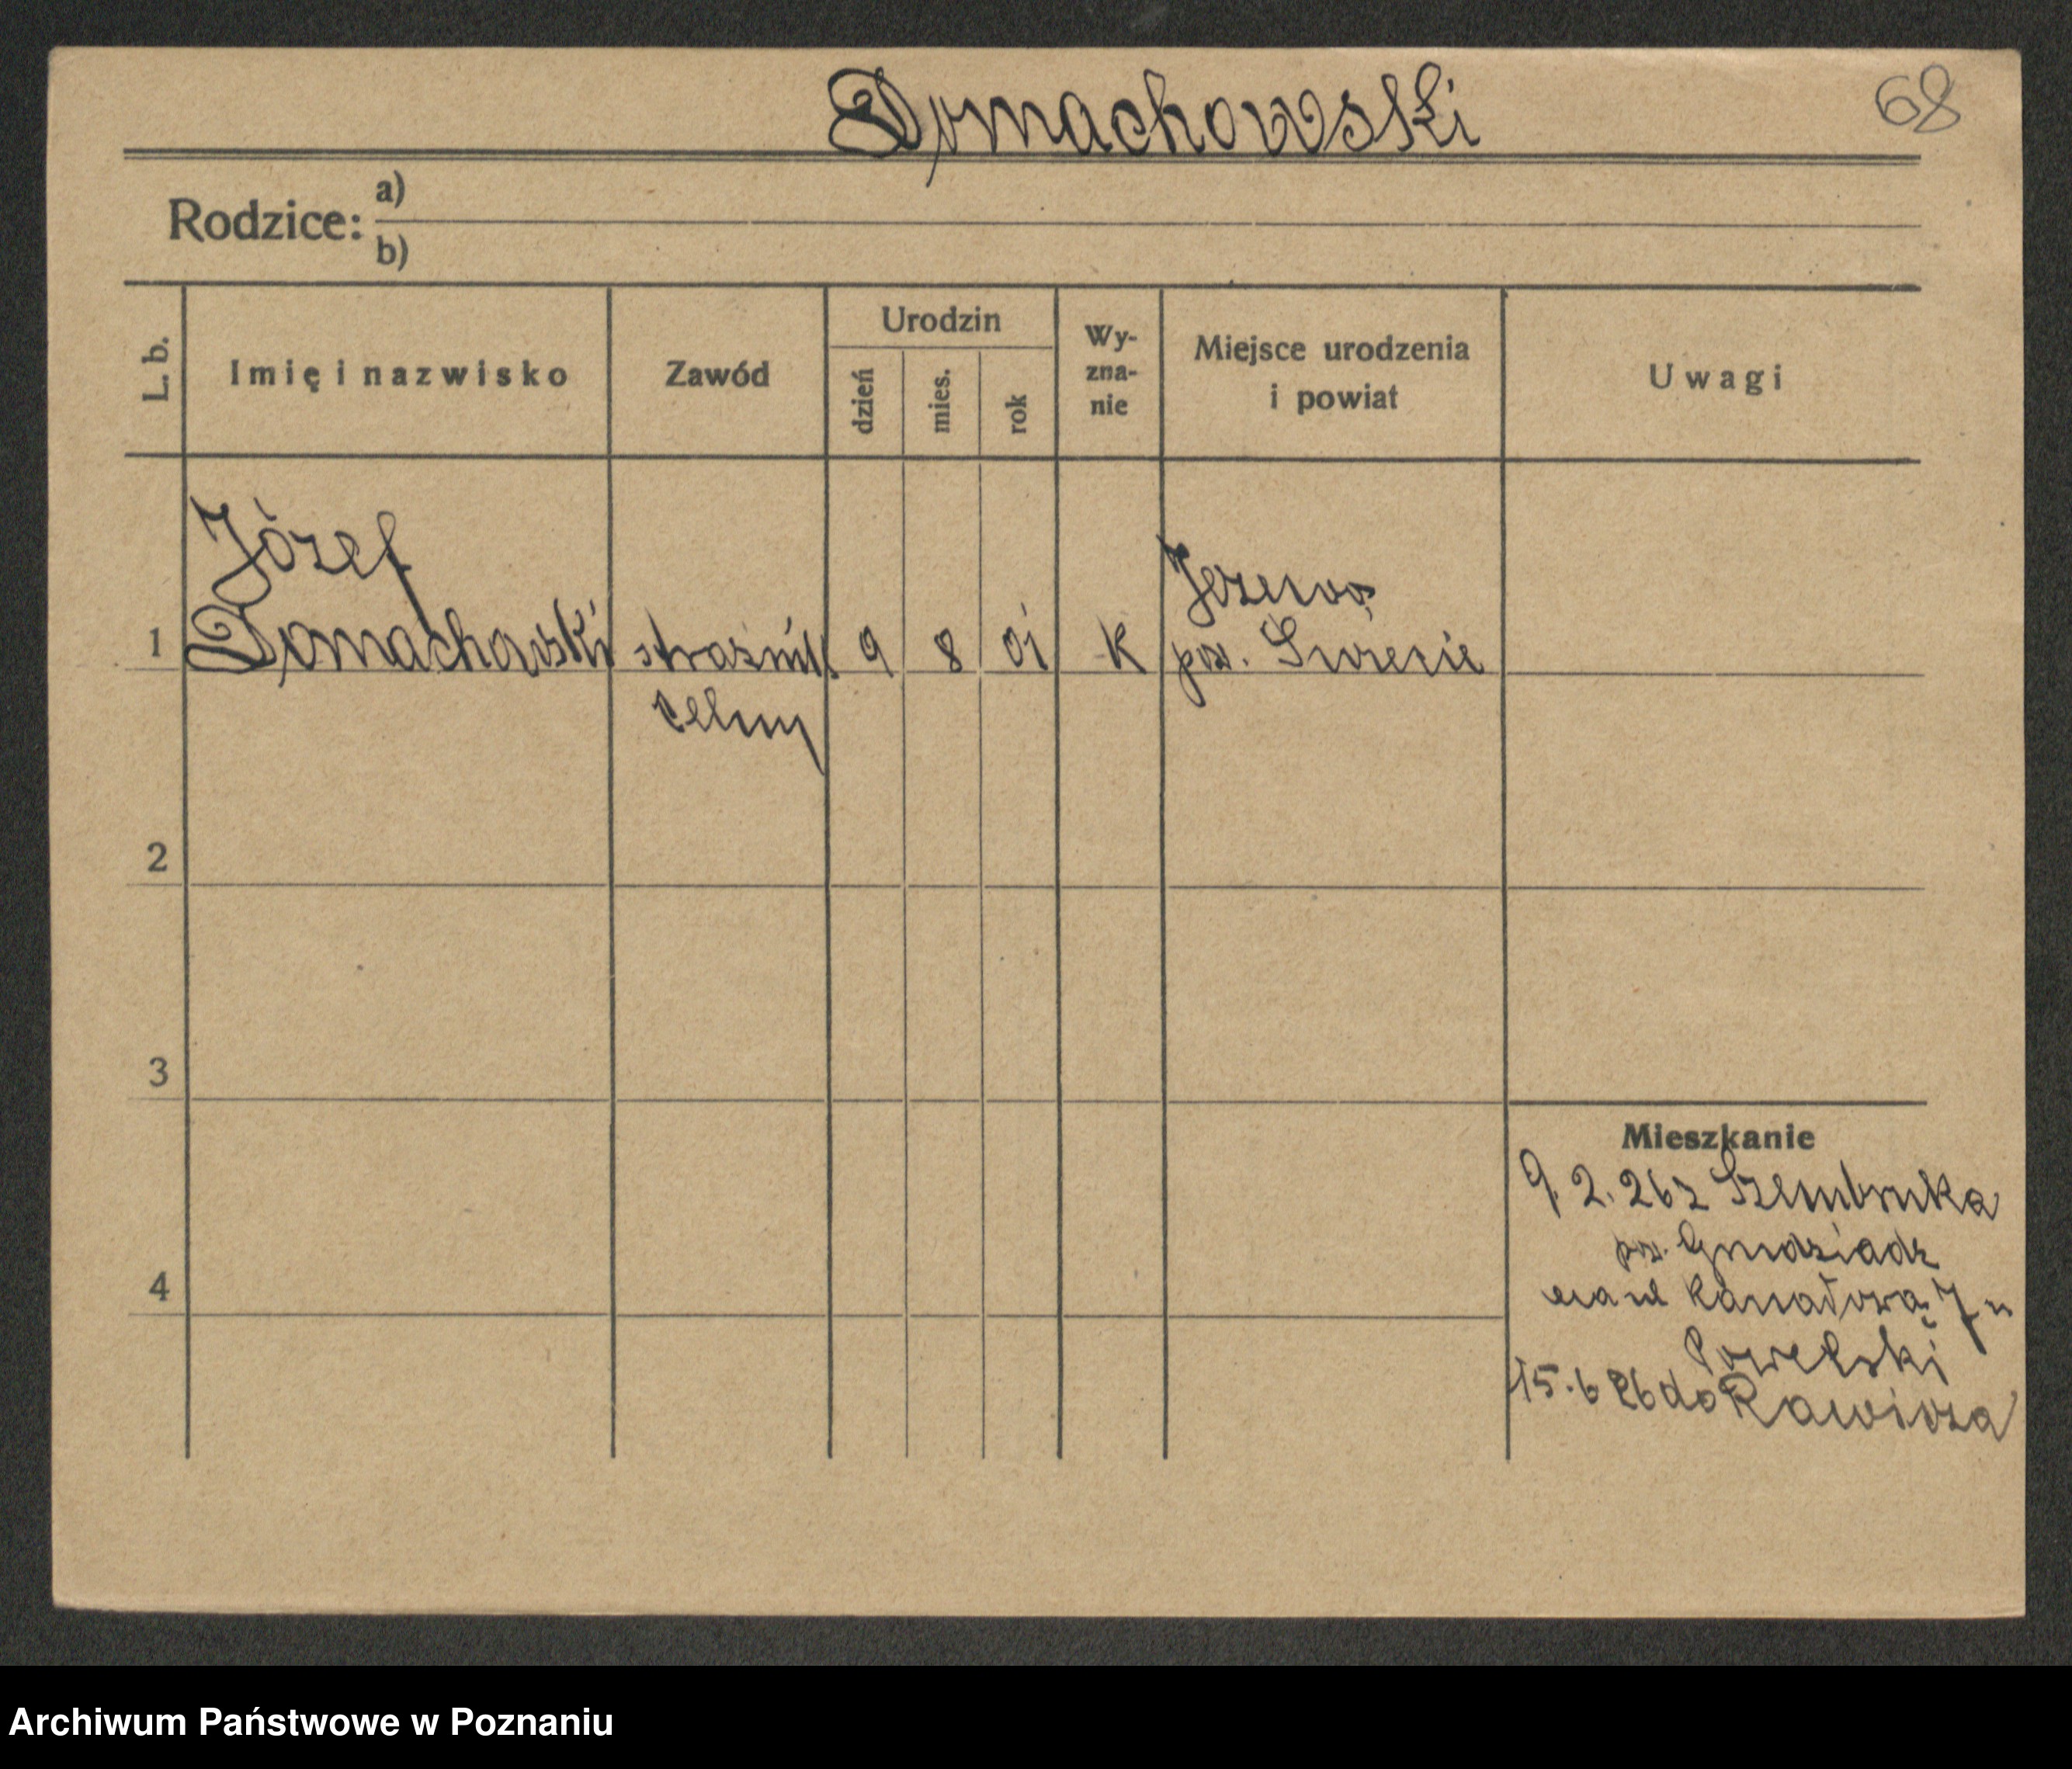 Domachowski
68
Rodzice: a)
b)
L. b.
Imię i nazwisko
Zawód
Urodzin
dzień
mies.
rok
Wy-
zna-
nie
Miejsce urodzenia
i powiat
Uwagi
Józef
Jezewo
1 Domachowski strażnik 9 8 01 K pow. Świecie
celny
2
3
4
Mieszkanie
9. 2. 26 z Szembruka
pow. Grudziądz
Kanałową 7 u
15. 6 26 do Rawicza
Archiwum Państwowe w Poznaniu